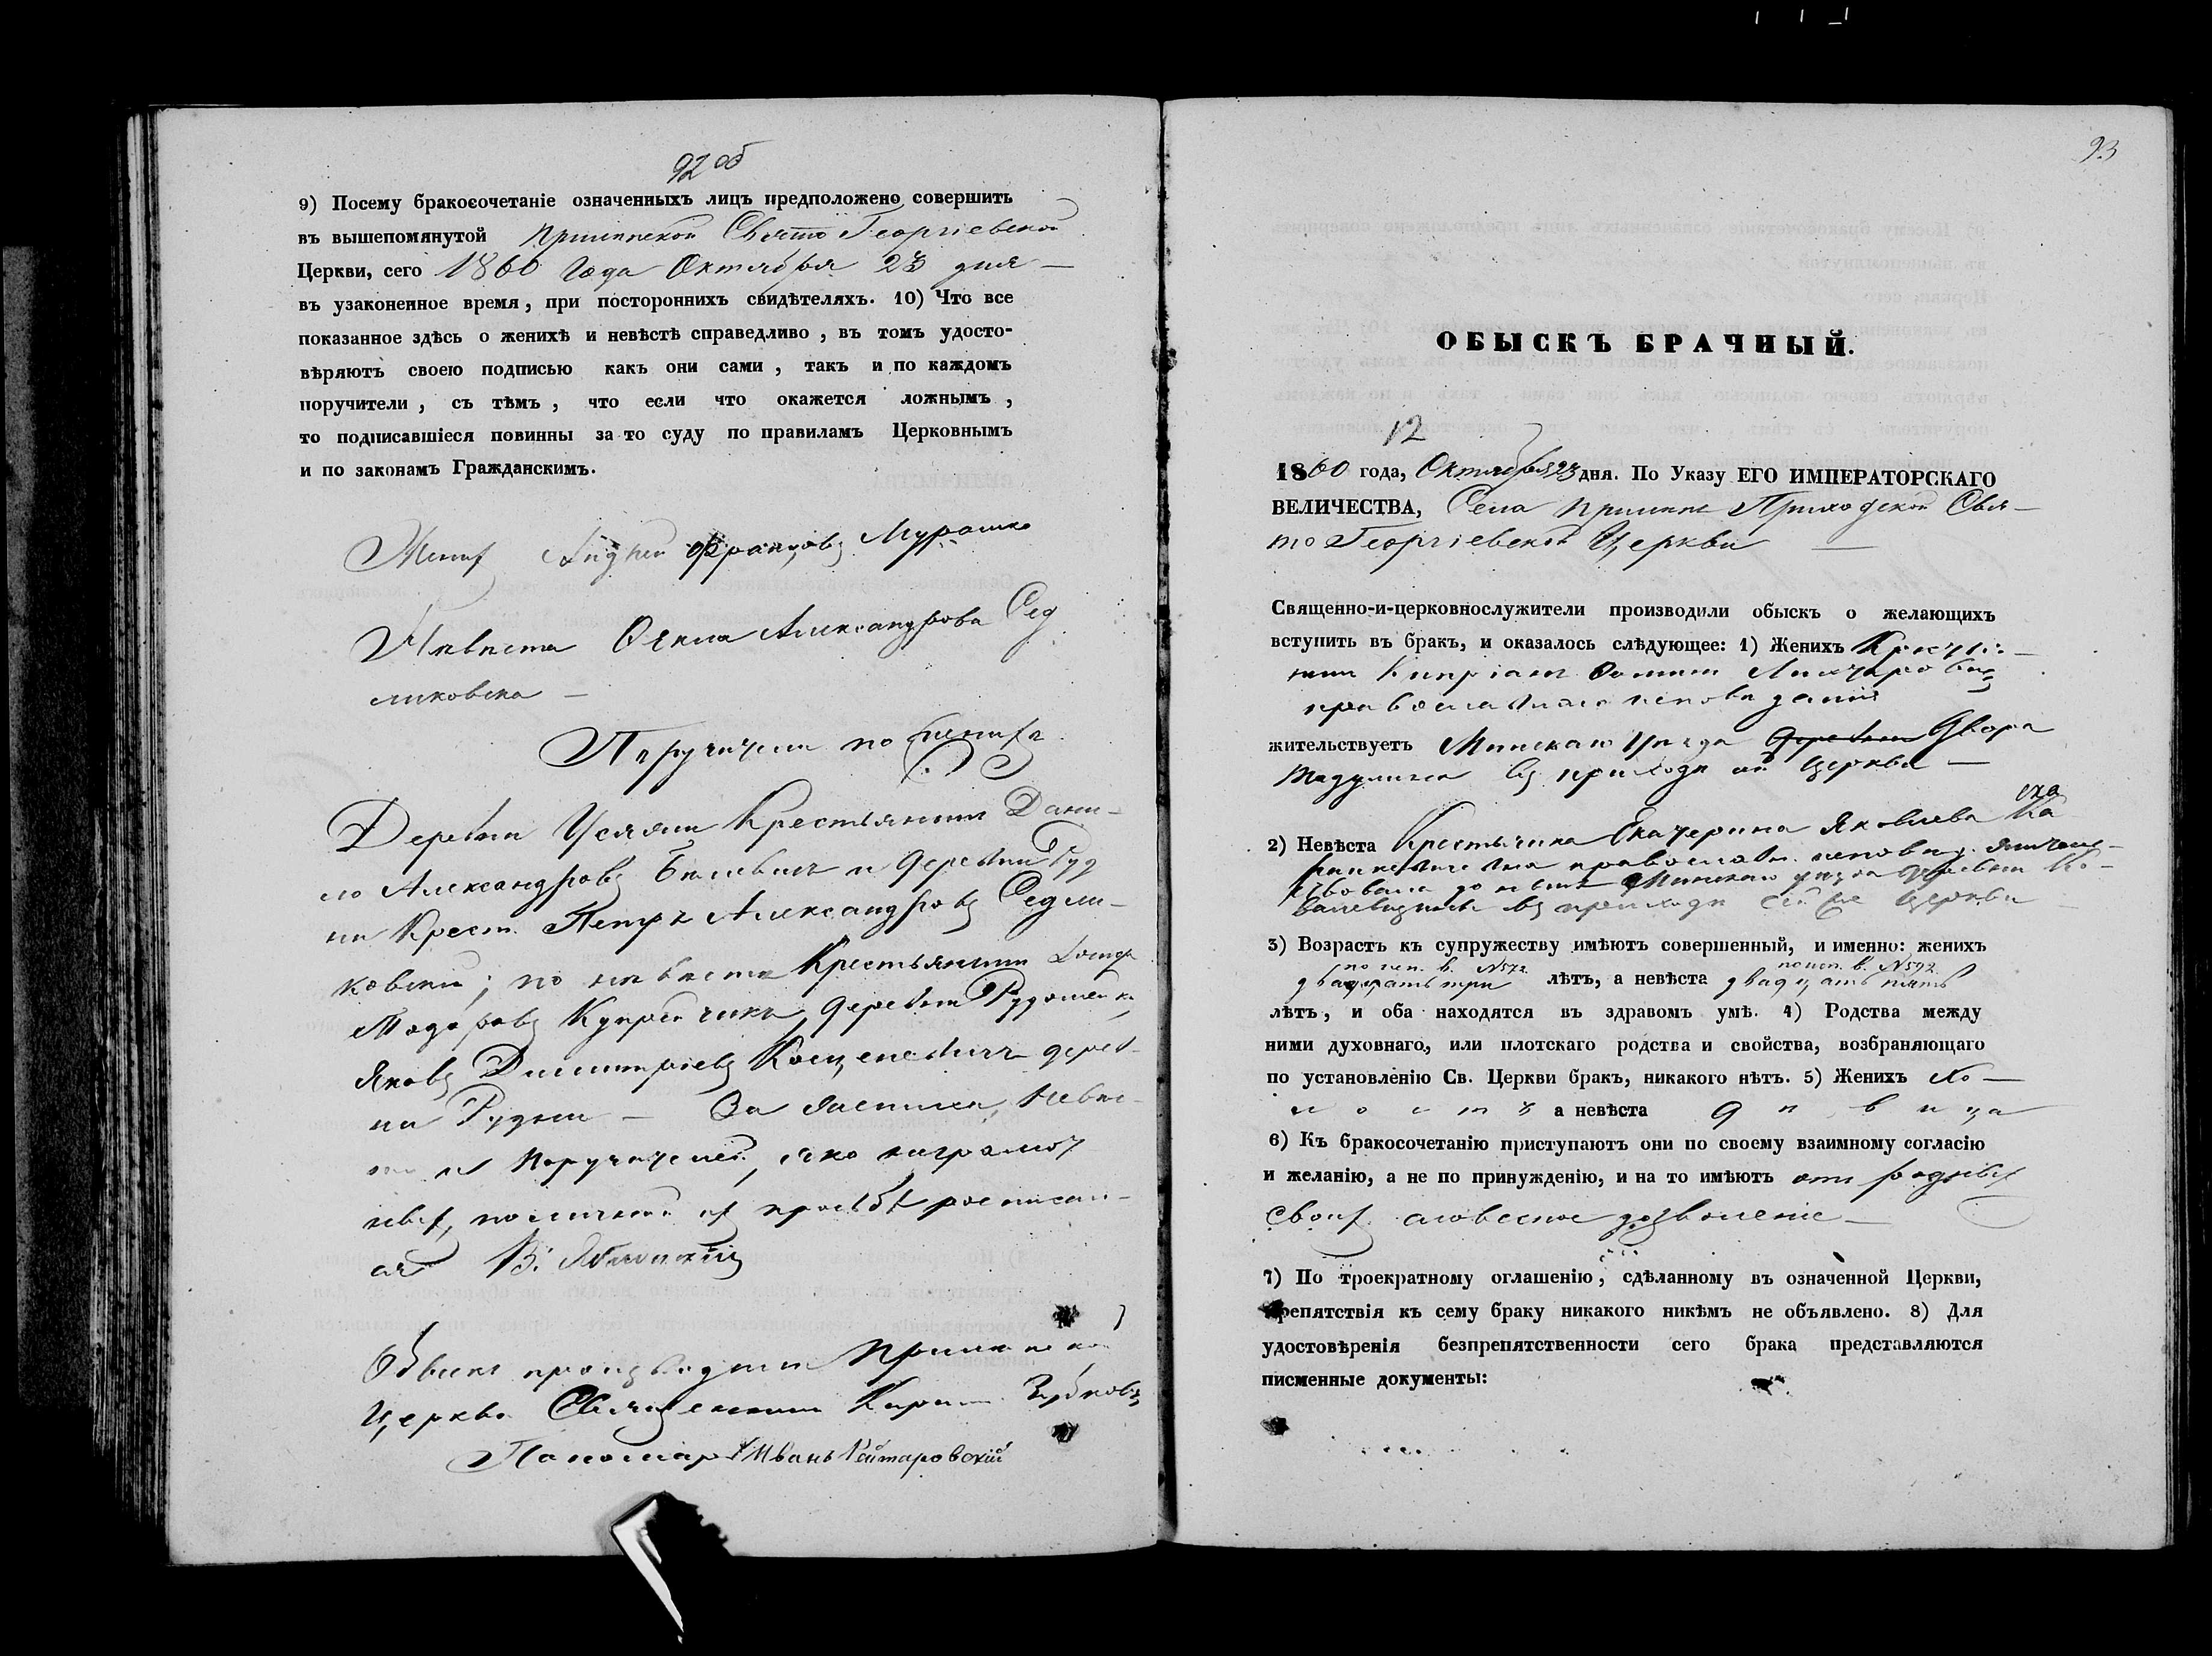 92 об
9) Посему бракосочетаніе означенныхъ лицъ предположено совершить
въ вышепомянутой Прилепской Свято Георгіевской
Церкви, сего 1860 Года Октября 23 дня —
въ узаконенное время, при постороннихъ свидѣтеляхъ. 10) Что все
показанное здѣсь о женихѣ и невѣстѣ справедливо, въ томъ удосто-
вѣряютъ своею подписью какъ они сами, такъ и по каждомъ
поручители, съ тѣмъ, что если что окажется ложнымъ,
то подписавшіеся повинны за то суду по правиламъ Церковнымъ
и по законамъ Гражданскимъ.
Жених Андрей Францовъ Мурашко
Невѣста Александрова Сед
ликовска —
Поручители по жениху
Деревни Крестьянинъ Дани-
ло Александровъ и деревни Руд
ни Крест. Петръ Александровъ Седли-
ковскій; по невѣсте Крестьянинъ
Тодоровъ деревни
Яковъ Димитріевъ дерев-
ни Рудни — За Жениха, Невѣс-
ту и Поручителей, яко неграмот
ныхъ, по личной их просьбѣ росписал-
ся В.
Обыскъ производили Прилепской
Церкви Священникъ
Пономарь Иванъ
93
ОБЫСКЪ БРАЧНЫЙ.
12
1860 года, Октября 23 дня. По Указу ЕГО ИМПЕРАТОРСКАГО
ВЕЛИЧЕСТВА, Села Прилепъ Приходской Свя-
то Георгіевской Церкви —
Священно-и-церковнослужители производили обыскъ о желающихъ
вступить въ бракъ, и оказалось слѣдующее: 1) Женихъ Крестья-
нинъ Кипріанъ
православнаго исповѣданія
жительствуетъ Минскаго уѣзда деревни Двора
въ приходѣ Церкви —
2) Невѣста Крестьянка Екатерина Яковлева
православн. исповѣд. жительс-
твовала до нынѣ Минскаго уѣзда деревни
въ приходѣ сей же Церкви
3) Возрастъ къ супружеству имѣютъ совершенный, и именно: женихъ
по исп. в. N 572 по исп. в. N 592
двадцать три лѣтъ, а невѣста двадцать пять
лѣтъ, и оба находятся въ здравомъ умѣ. 4) Родства между
ними духовнаго, или плотскаго родства и свойства, возбраняющаго
по установленію Св. Церкви бракъ, никакого нѣтъ. 5) Женихъ хо-
лостъ а невѣста дѣвица
6) Къ бракосочетанію приступаютъ они по своему взаимному согласію
и желанію, а не по принужденію, и на то имѣютъ отъ родных
своих словесное дозволеніе —
7) По троекратному оглашенію, сдѣланному въ означенной Церкви,
препятствія къ сему браку никакого никѣмъ не объявлено. 8) Для
удостовѣренія безпрепятственности сего брака представляются
писменные документы: